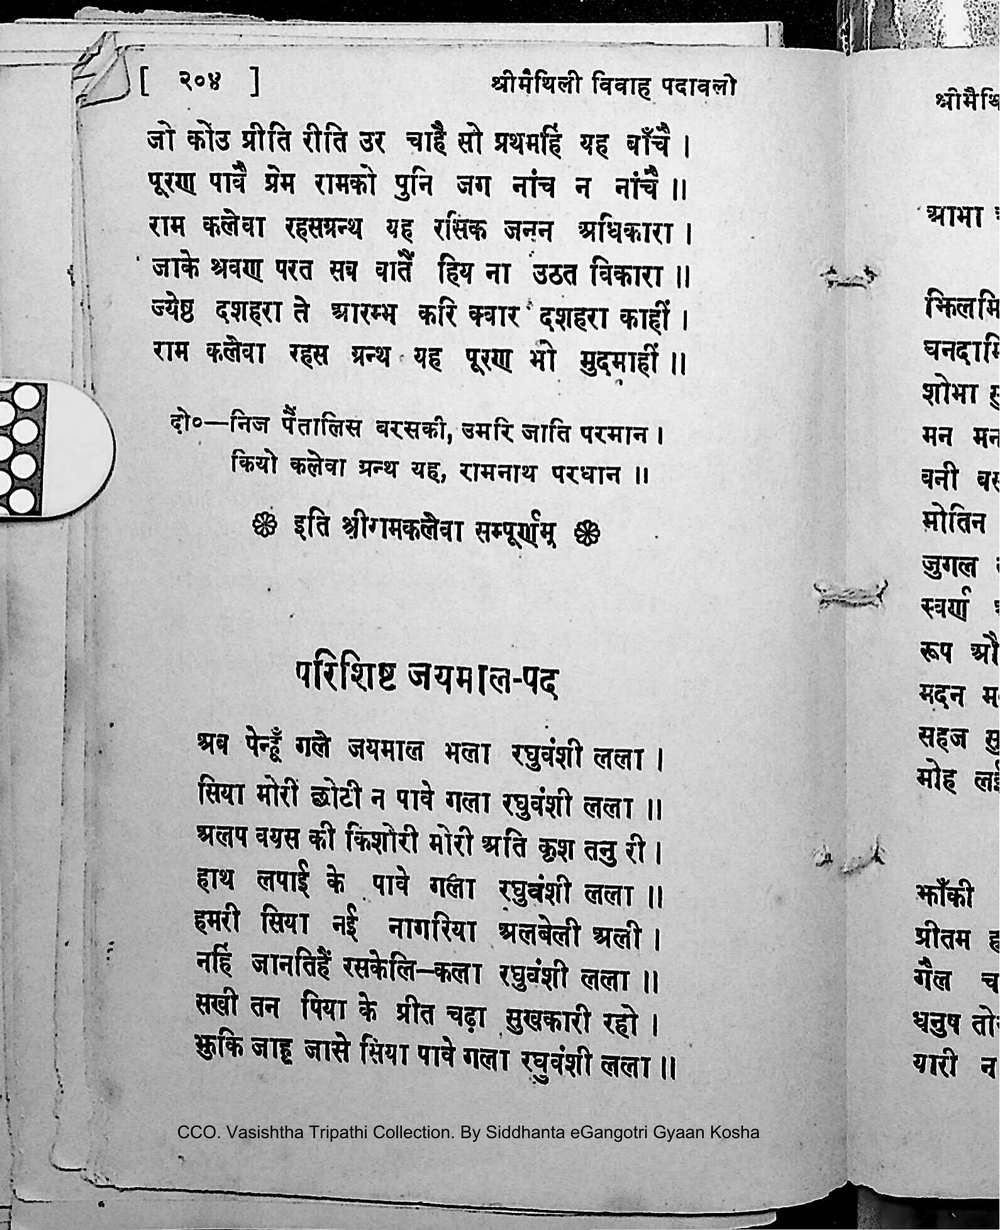 [ २०४ ] श्रीमैथिली विवाह पदावलो
जो कोउ प्रीति रीति उर चाहै सो प्रथमहिं यह बाँचै ।
पूरण पावै प्रेम रामको पुनि जग नांच न नांचै ॥
राम कलेवा रहसग्रन्थ यह रसिक जनन अधिकारा ।
जाके श्रवण परत सब वातैं हिय ना उठत विकारा ॥
ज्येष्ठ दशहरा ते आरम्भ करि क्वार दशहरा काहीं ।
राम कलेवा रहस ग्रन्थ यह पूरण भो मुदमाहीं ॥
दो०—निज पैंतालिस बरसकी, उमरि जाति परमान ।
कियो कलेवा ग्रन्थ यह, रामनाथ परधान ॥
इति श्रीरामकलेवा सम्पूर्णम्
परिशिष्ट जयमाल-पद
अब पेन्हूँ गले जयमाल भला रघुवंशी लला ।
सिया मोरीं छोटी न पावे गला रघुवंशी लला ॥
अलप वयस की किशोरी मोरी अति कृश तनु री ।
हाथ लपाई के पावे गला रघुवंशी लला ॥
हमरी सिया नई नागरिया अलबेली अली ।
नहिं जानतिहैं रसकेलि—कला रघुवंशी लला ॥
सखी तन पिया के प्रीत चढ़ा सुखकारी रहो ।
झुकि जाहू जासे सिया पावे गला रघुवंशी लला ॥
CCO. Vasishtha Tripathi Collection. By Siddhanta eGangotri Gyaan Kosha
श्रीमैथि
आभा
झिलमि
घनदामि
शोभा
मन मन
वनी
मोतिन
जुगल
स्वर्ण
रूप औ
मदन म
सहज सु
मोह लई
झाँकी
प्रीतम ह
गैल च
धनुष तो
यारी न